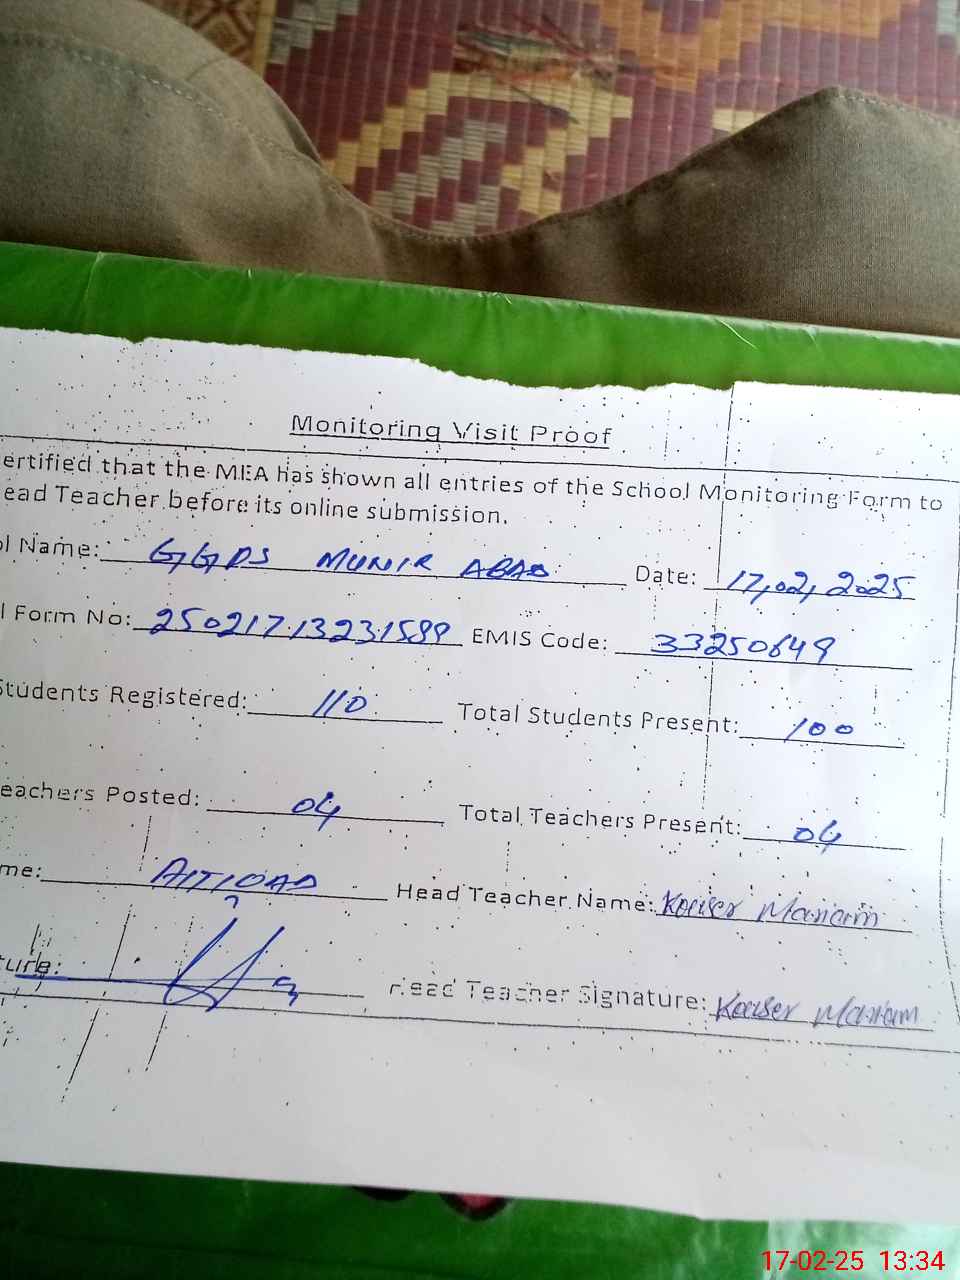 Monitoring Visit Proof
ertified that the MEA has shown all entries of the School Monitoring Form to
ead Teacher before its online submission.
ol Name: GGPS MUNIR ABAD Date: 17,02,2025
l Form No: 250217.13231599 EMIS Code: 33250649
Students Registered: 110 Total Students Present: 100
eachers Posted: 04 Total Teachers Present: 04
me: Head Teacher Name: Kouser Mariam
ture: Head Teacher Signature: Kouser Mariam
17-02-25 13:34